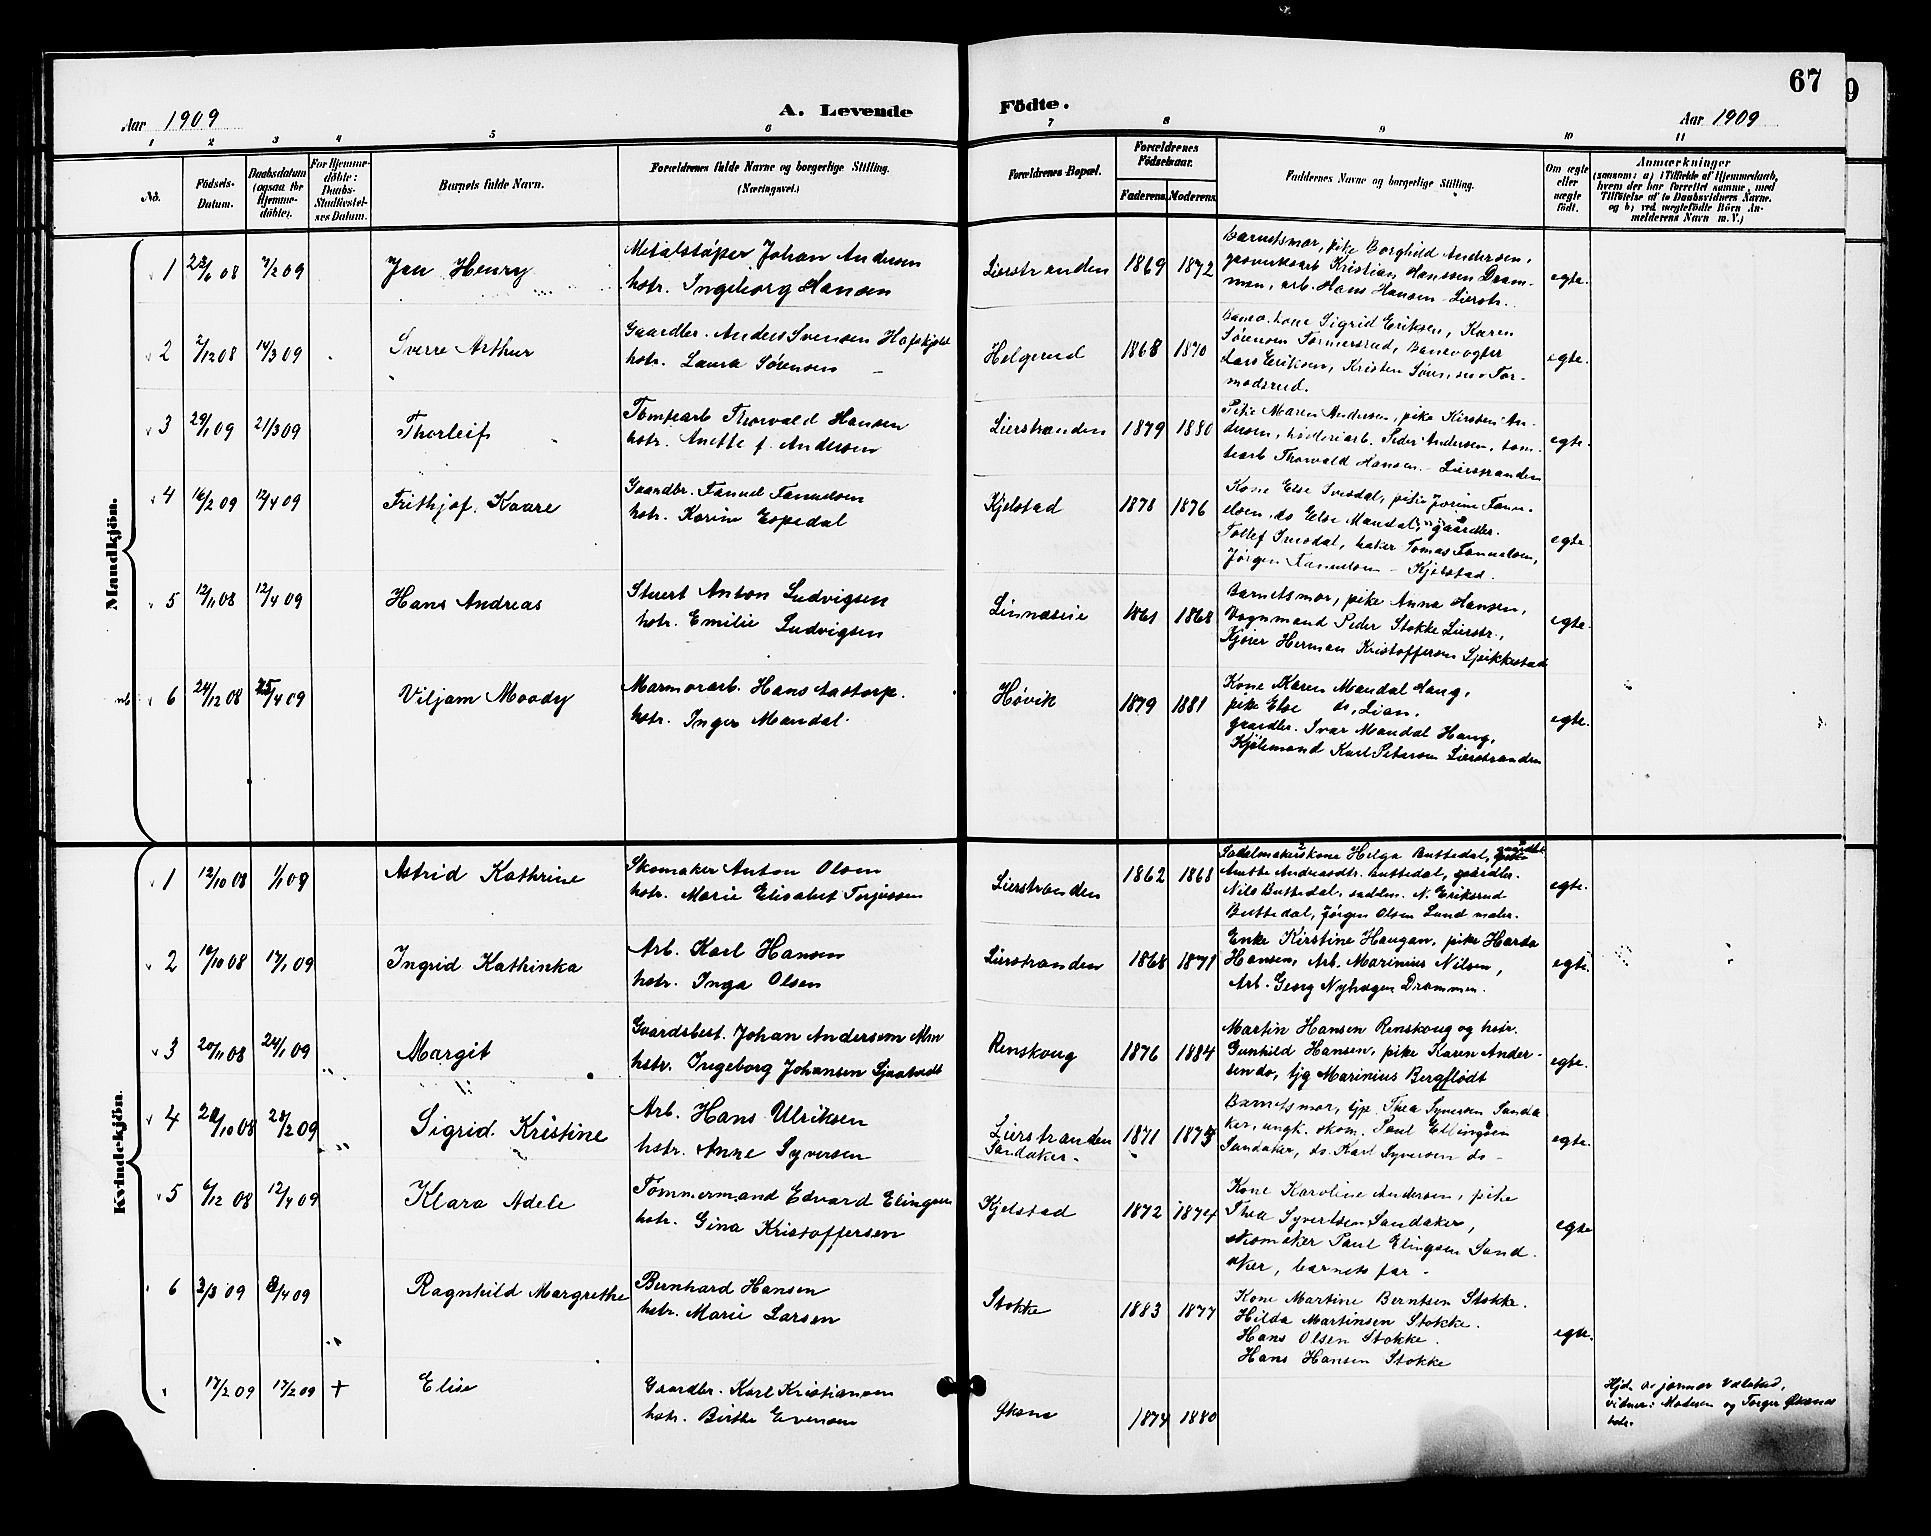 67
Aar 1909
A. Levende Födte.
Aar 1909
1 2 3 4 5 6 7 8 9 10 11
No.
Födsels-Datum.
Daabsdatum (ogsaa for Hjemme-döbte).
For Hjemme-döbte: Daabs-Stadfæstel-ses Datum.
Barnets fulde Navn.
Forældrenes fulde Navne og borgerlige Stilling.
(Næringsvei.)
Forældrenes Bopæl.
Forældrenes Födselsaar.
Faderens. Moderens.
Faddernes Navne og borgerlige Stilling.
Om ægte eller uægte födt.
Anmærkninger
(saasom: a) i Tilfælde af Hjemmedaab,
hvem der har forrettet samme, med
Tilföielse af to Daabsvidners Navne.
og b) ved uægtefödte Börn An-
melderens Navn m. V.)
Mandkjön.
1 23/6 08 7/2 09 Jan Henry
Metalstøper Johan Andersen
hstr. Ingeborg Hansen
Lierstranden 1869 1872
Barnetsmor, pike Borghild Andersen,
gasverksarb Kristian Hanssen Dram-
men, arb. Hans Hansen Lierstr.
egte.
2 2/12 08 14/3 09 Sverre Arthur
Gaardbr. Anders Svensen
hstr. Laura Sörensen
Helgerud 1868 1870
Kone Sigrid Eriksen, Karen
Sörensen Tormersrud, Banevogter
Lars Eriksen, Kristen Sörensen Tor-
modsrud.
egte.
3 29/1 09 21/3 09 Thorleif
Tomtearb Thorvald Hansen
hstr. Anette f. Andersen
Lierstranden 1879 1880
Pike Maren Andersen, pike Kirsten An-
dersen, höileriarb. Peder Andersen, tom-
tearb Thorvald Hansen - Lierstranden
egte.
4 16/2 09 12/4 09 Frithjof. Kaare
Gaardbr. Fanuel Fanuelsen
hstr. Karine Espedal
Kjelstad 1878 1876
Kone Else Ivesdal, pike Jorine Fanu-
elsen, do Else Mandal, gaardbr.
Tollef Ivesdal, baker Tomas Fanuelsen,
Jørgen Fanuelsen - Kjelstad.
egte.
5 12/11 08 12/4 09 Hans Andreas
Stuert Anton Ludvigsen
hstr. Emilie Ludvigsen
Linnæseie 1861 1868
Barnetsmor, pike Anna Hansen,
Vognmand Peder Stokke Lierstr.,
Kjører Herman Kristoffersen Spikkestad
egte.
nb 6 24/12 08 25/4 09 Viljam Moody
Marmorarb. Hans Aastorp.
hstr. Inger Mandal.
Høvik 1879 1881
Kone Karen Mandal Haug,
pike Else do, Lian.
gaardbr. Ivar Mandal Haug,
Kjölemand Karl Petersen Lierstranden
egte.
Kvindekjön.
1 12/10 08 1/1 09 Astrid Kathrine
Skomaker Anton Olsen
hstr. Marie Elisabet Torjussen
Lierstranden 1862 1868
Sadelmakerskone Helga Buttedal,
Anette Andreasdtr. Buttedal, gaardbr.
Nils Buttedal, sadelm. N. Eriksrud
Buttedal, Jörgen Olsen Lund maler.
egte.
2 19/10 08 17/1 09 Ingrid Kathinka
Arb. Karl Hansen
hstr. Inga Olsen
Lierstranden 1868 1871
Enke Kirstine Haugan, pike Harda
Hansen, Arb. Marinius Nilsen,
Arb. Georg Nyhagen Drammen.
egte.
3 20/11 08 24/1 09 Margit
Gaardsbest. Johan Andersen Mm
hstr. Ingeborg Johansen Sjaastadt
Renskoug 1876 1884
Martin Hansen Renskoug og hstr.
Gunhild Hansen, pike Karen Ander-
sen do, tjg Marinius Bergflödt
egte.
4 20/10 08 28/2 09 Sigrid. Kristine
Arb. Hans Ulriksen
hstr. Anne Syversen
Lierstranden
Sandaker. 1871 1873
Barnetsmor, tjp. Thea Syversen Sanda
ker, ungk. skom. Paul Ellingsen
Sandaker, do. Karl Syversen do -
egte.
5 6/12 08 12/4 09 Klara Adele
Tømmermand Edvard Elingsen
hstr. Gina Kristoffersen
Kjelstad 1872 1874
Kone Karoline Andersen, pike
Thea Syvertsen Sandaker,
skomaker Paul Elingsen Sand-
aker, barnets far -
egte
6 3/3 09 8/4 09 Ragnhild Margrethe
Bernhard Hansen
hstr. Marie Larsen
Stokke 1883 1877
Kone Martine Berntsen Stokke.
Hilda Martinsen Stokke.
Hans Olsen Stokke.
Hans Hansen Stokke
egte.
17/2 09 17/2 09 + Elise
Gaardbr. Karl Kristiansen
hstr. Birthe Evensen
1874 1880
Hjd. av jormor Valstad,
vidner: Madsen og Torger